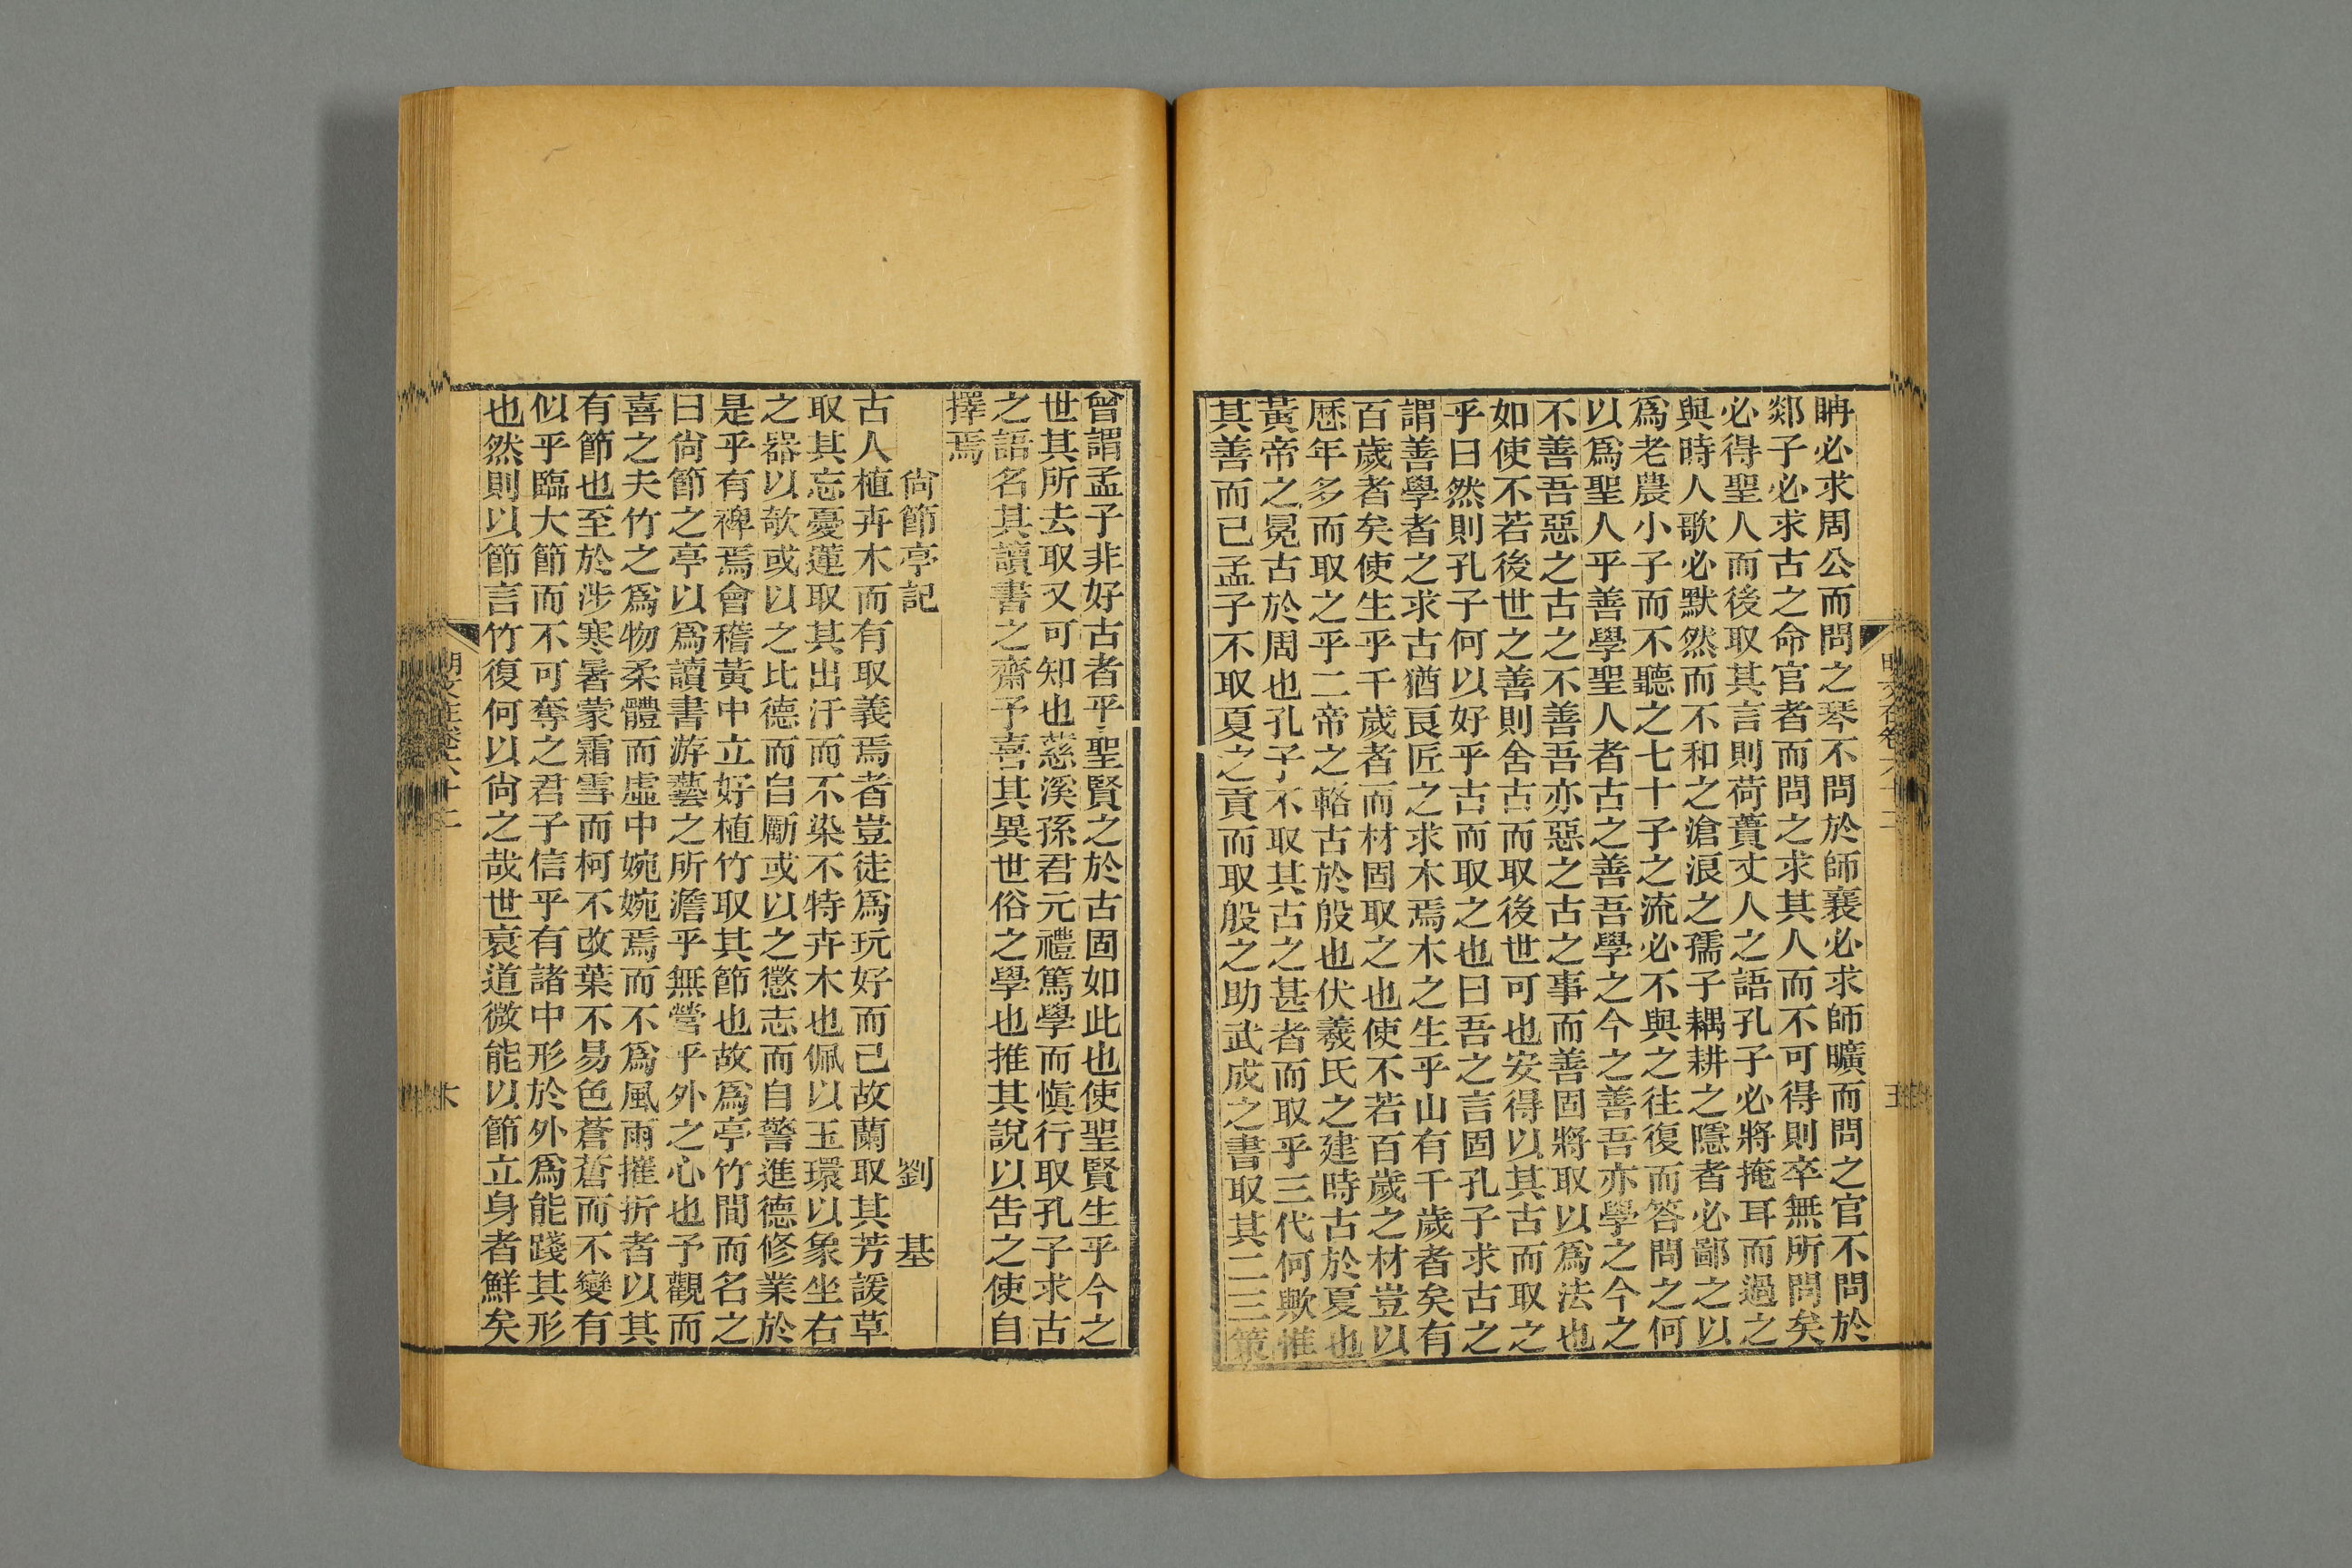 聃必求周公而問之琴不問於師襄必求師曠而問之官不問於
郯子必求古之命官者而問之求其人而不可得則卒無所問矣
必得聖人而後取其言則荷蕢丈人之語孔子必將掩耳而過之
與時人歌必默然而不和之滄浪之孺子耦耕之隱者必鄙之以
爲老農小子而不聽之七十子之流必不與之往復而答問之何
以爲聖人乎善學聖人者古之善吾學之今之善吾亦學之今之
不善吾惡之古之不善吾亦惡之古之事而善固將取以爲法也
如使不若後世之善則舍古而取後世可也安得以其古而取之
乎曰然則孔子何以好乎古而取之也曰吾之言固孔子求古之
謂善學者之求古猶良匠之求木焉木之生乎山有千歲者矣有
百歲者矣使生乎千歲者而材固取之也使不若百歲之材豈以
歷年多而取之乎二帝之輅古於殷也伏羲氏之建時古於夏也
黃帝之冕古於周也孔子不取其古之甚者而取乎三代何歟惟
其善而已孟子不取夏之貢而取殷之助武成之書取其二三策
曾謂孟子非好古者乎聖賢之於古固如此也使聖賢生乎今之
世其所去取又可知也慈溪孫君元禮篤學而愼行取孔子求古
之語名其讀書之齋予喜其異世俗之學也推其說以告之使自
擇焉
尙節亭記 劉基
古人植卉木而有取義焉者豈徒爲玩好而已故蘭取其芳諼草
取其忘憂蓮取其出汙而不染不特卉木也佩以玉環以象坐右
之器以欹或以之比德而自勵或以之懲志而自警進德修業於
是乎有裨焉會稽黃中立好植竹取其節也故爲亭竹間而名之
曰尙節之亭以爲讀書游藝之所澹乎無營乎外之心也予觀而
喜之夫竹之爲物柔體而虛中婉婉焉而不爲風雨摧折者以其
有節也至於涉寒暑蒙霜雪而柯不改葉不易色蒼蒼而不變有
似乎臨大節而不可奪之君子信乎有諸中形於外爲能踐其形
也然則以節言竹復何以尙之哉世衰道微能以節立身者鮮矣